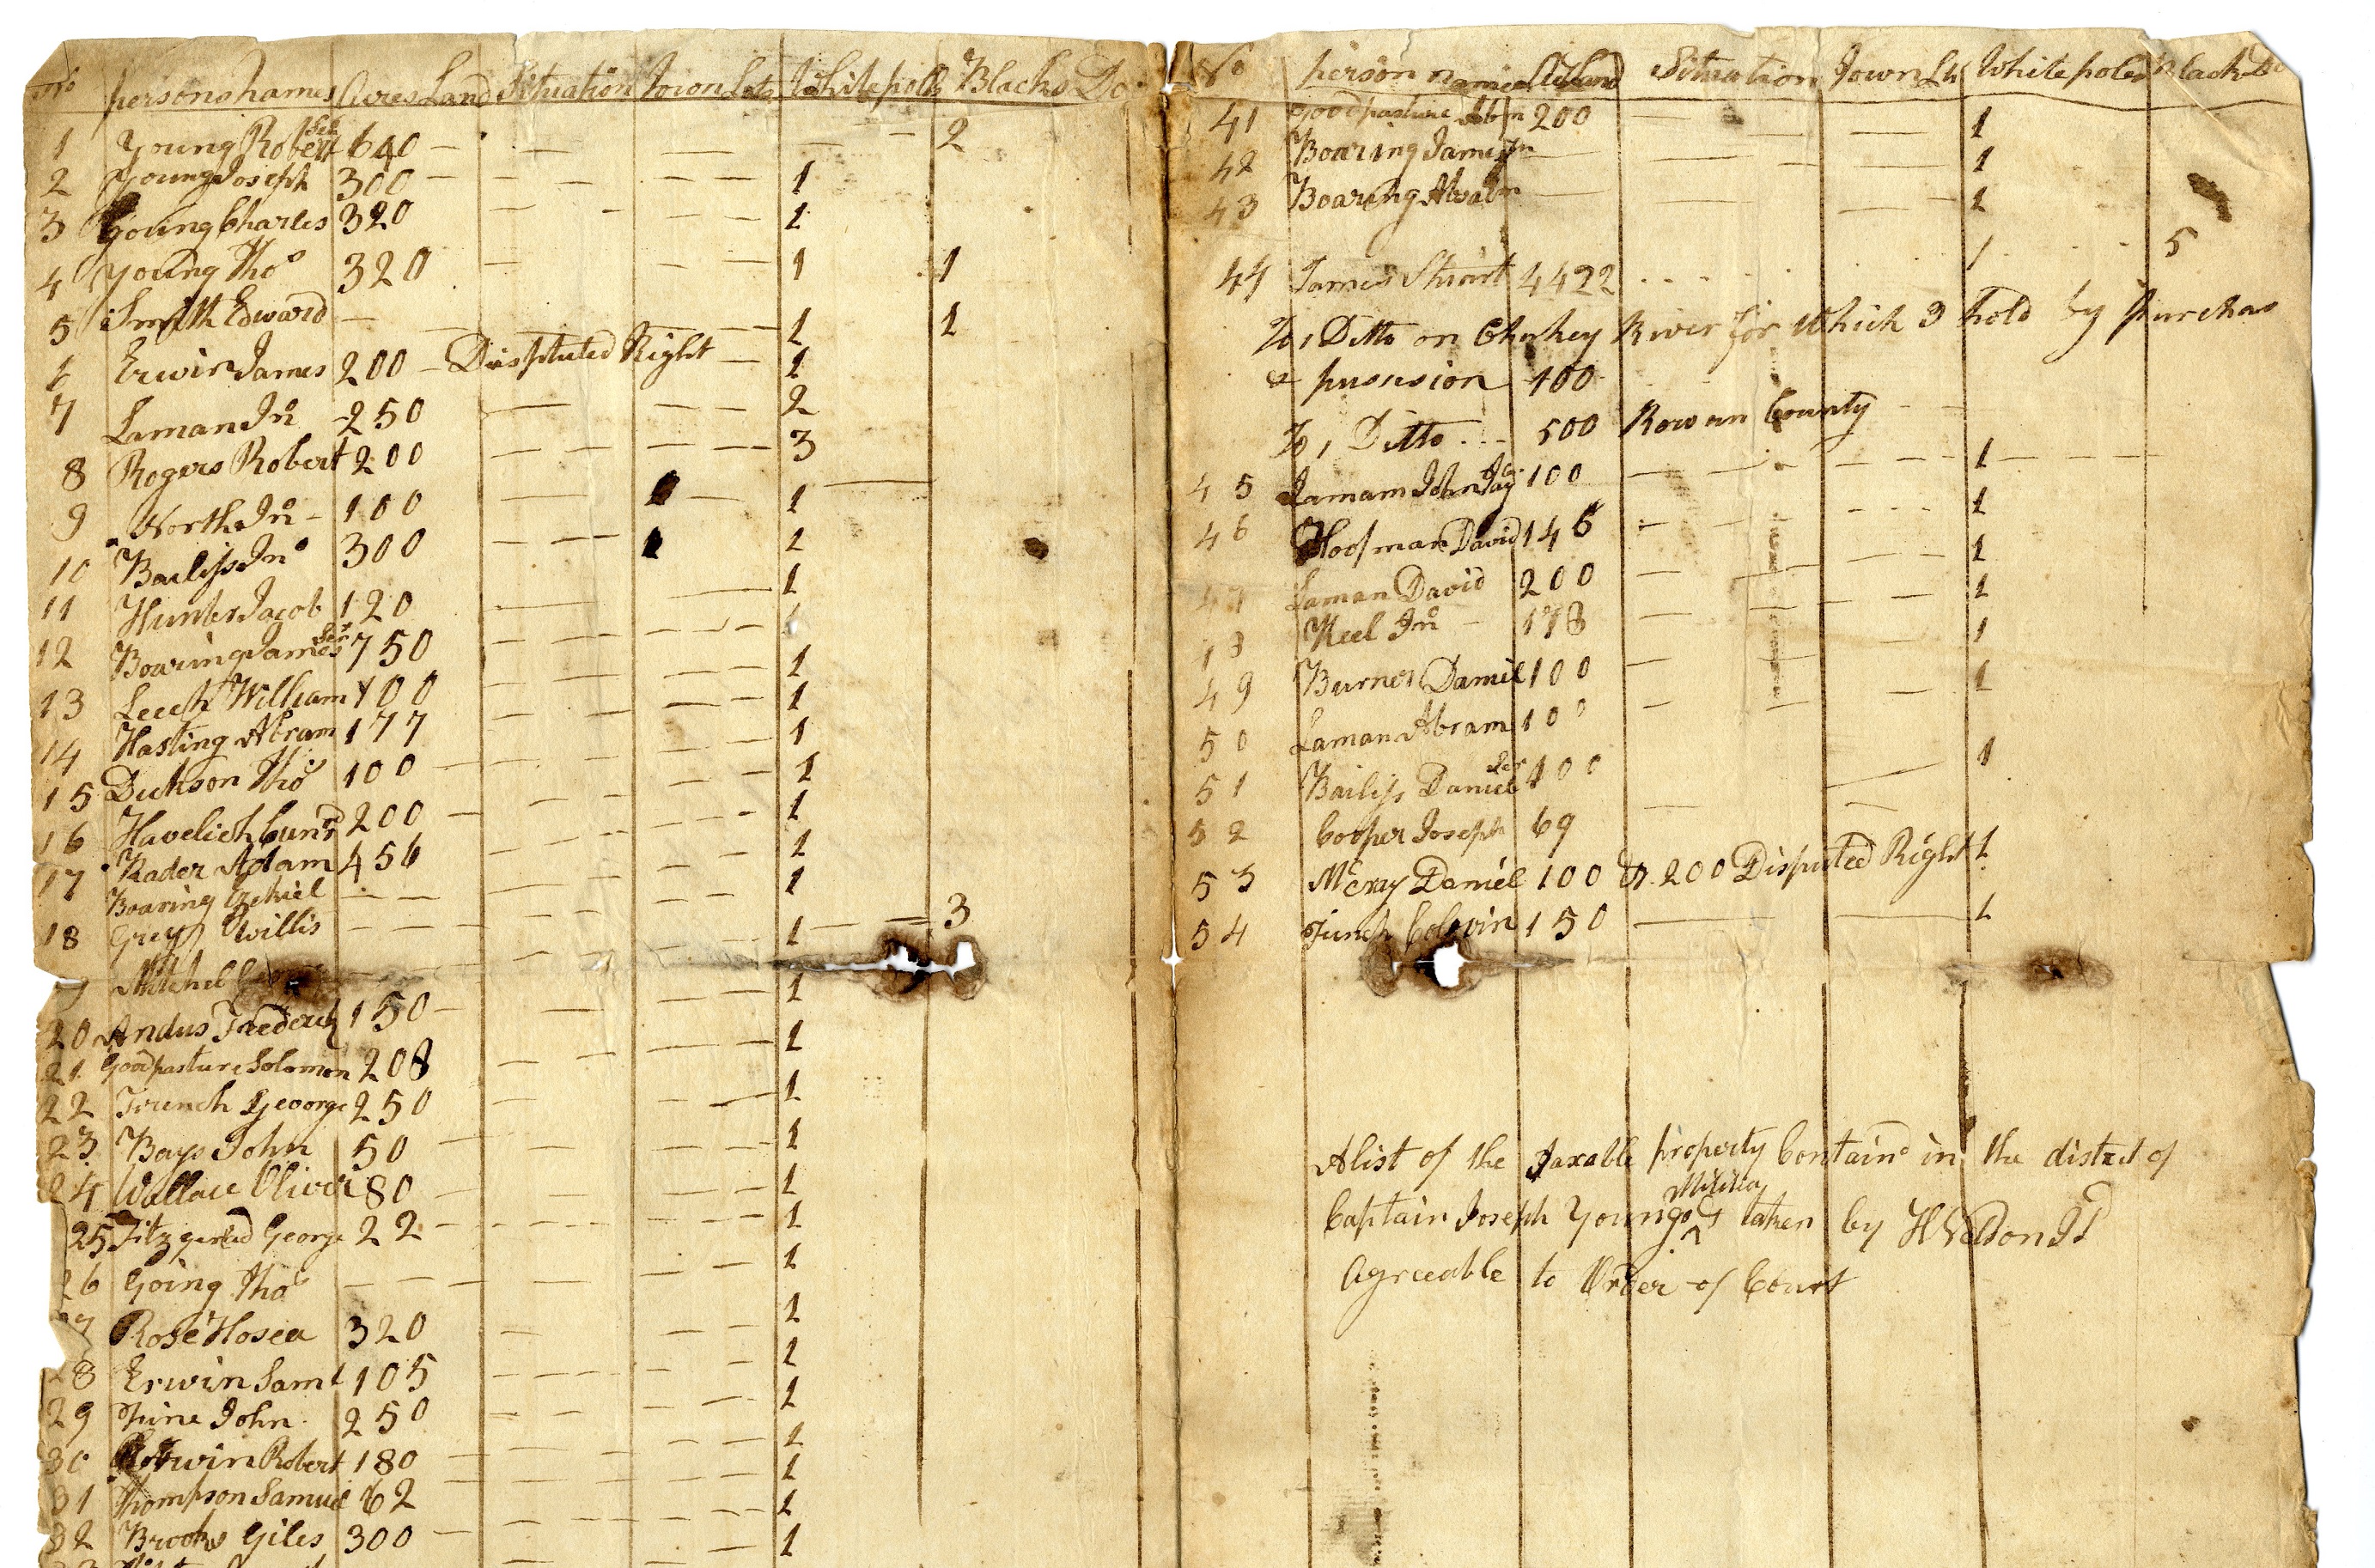 No persons names Acres Land Situation Town Lots White polls Blacks Do
1 Young Robert Sen 640 — — — — — 2
2 Young Joseph 300 — — — — — 1
3 Young Charles 320 — — — — — 1
4 Young Tho 320 — — — 1 1
5 Smith Edward — — — — 1 1
6 Erwin James 200 — Disputed Right — 1
7 Laman Jno 250 — — — 2
8 Rogers Robert 200 — — — — 3
9 North Jno — 100 — — 1
10 Bailiss Jno 300 — — — 1
11 Hunter Jacob 120 — — 1
12 Boaring James Senr 750 — — — —
13 Leech William 400 — — — 1
14 Hasting Abram 177 — — — 1
15 Duckson Tho 100 — — — — 1
16 Havelich 200 — — — — 1
17 Rader Adam 456 — — — — 1
Boaring Ezekiel — — — — — 1
18 Greyf Willis — — — — — — 1
Mitchel — — 1 — — 3
20 Andus Frederick 150 — — — — 1
21 Goodpasture Solomon 208 — — — 1
22 French George 250 — — — 1
23 Bays John 50 — — — — 1
24 Wallace Oliver 80 — — — — 1
25 Fitzgerled George 22 — — — — 1
26 Going Tho — — — — — 1
27 Rose Hosea 320 — — — 1
28 Erwin Saml 105 — — — — 1
29 Pine John 250 — — — — 1
30 Erwin Robert 180 — — — — 1
31 Thompson Samuel 62 — — — — 1
32 Brooks Giles 300 — — — — 1
1
No person names A Land Situation Town Lt White poles Black Do
41 Goodpasture Abm 200 — — — 1
42 Boaring James Jn — — — 1
43 Boaring Absalm — — — 1
44 James Stuart 4422 1 5
To, Ditto on Chukey River for Which I hold by purchas
& pusesion 100
To, Ditto 500 Rowan County
45 Lamam John 100 — — — 1
46 Hoofman David 146 — — — 1
47 Laman David 200 — — — 1
48 Keel Jno — 178 — — — 1
49 Burnes Daniel 100 — — — 1
50 Laman Abram 100 — — — 1
51 Bailiss Daniel Ser 100 — 1
52 Cooper Joseph 69 — —
53 McCray Daniel 100 & 200 Disputed Right 1
54 Finch Colovin 150 — — 1
A list of the Taxable property Containd in the district of
Captain Joseph Youngs Militia taken by H Nelson Jd
Agreeable to Order of Court